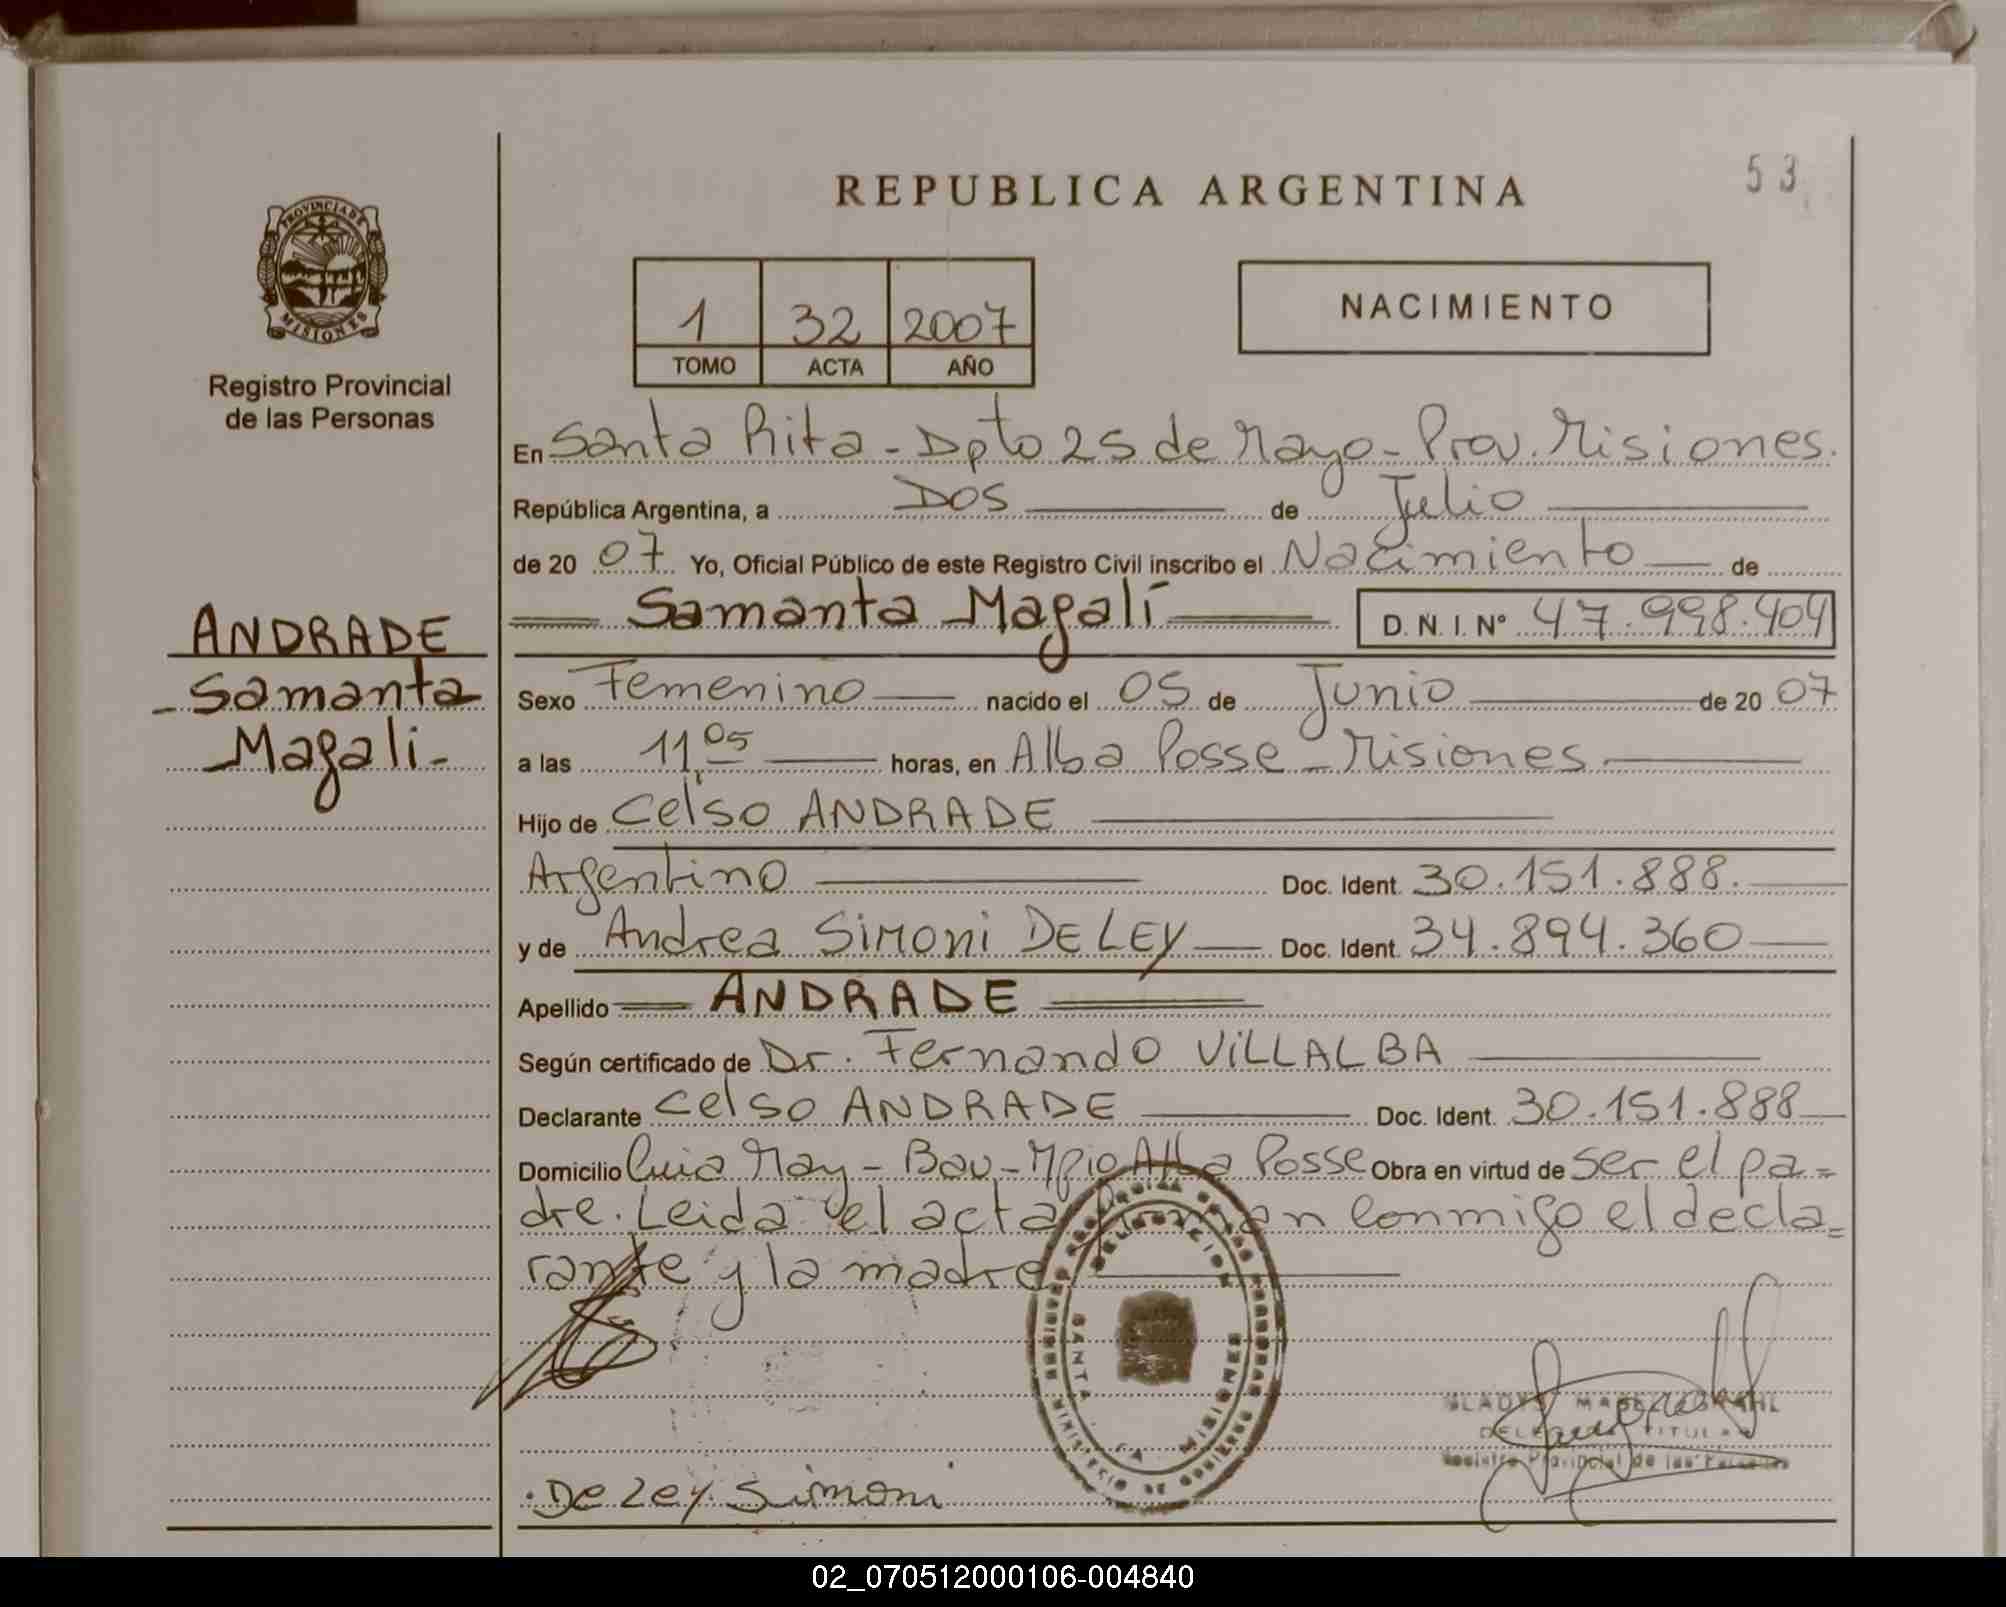 53
REPUBLICA ARGENTINA
PROVINCIA DE
MISIONES
Registro Provincial
de las Personas
1 32 2007
TOMO ACTA AÑO
NACIMIENTO
En Santa Rita - Dpto 25 de Mayo - Prov. Misiones.
República Argentina, a Dos de Julio
de 20 07 Yo, Oficial Público de este Registro Civil inscribo el Nacimiento de
Samanta Magalí D. N. I. N° 47.998.404
ANDRADE
Samanta
Magali-
Sexo Femenino nacido el 05 de Junio de 20 07
a las 11,05 horas, en Alba Posse - Misiones
Hijo de Celso ANDRADE
Argentino Doc. Ident. 30.151.888.
y de Andrea SiMoni DE LEY Doc. Ident. 34.894.360
Apellido ANDRADE
Según certificado de Dr. Fernando ViLLALBA
Declarante Celso ANDRADE Doc. Ident. 30.151.888
Domicilio May - Bav - Mpio Alba Posse Obra en virtud de ser el pa=
dre. Leida el acta firman conmigo el decla=
rante y la madre
SANTA MISIONES
MINISTERIO DE GOBIERNO
GLADYS
TITULAR
Registro Provincial de las Personas
De Ley Simoni
02_070512000106-004840